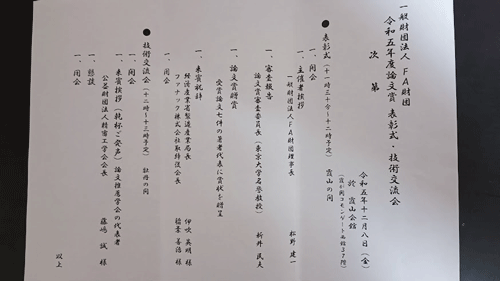 一般財団法人 FA財団
令和五年度論文賞 表彰式・技術交流会
次 第
令和五年十二月八日（金）
於 霞山会館
（霞が関コモンゲート西館37階）
● 表彰式（十一時三十分～十二時予定） 霞山の間
一、開会
一、主催者挨拶
一般財団法人FA財団理事長 松野 建一
一、審査報告
論文賞審査委員長（東京大学名誉教授） 新井 民夫
一、論文賞贈賞
受賞論文七件の著者代表に賞状を贈呈
一、来賓祝辞
経済産業省製造産業局長 伊吹 英明 様
ファナック株式会社取締役会長 稲葉 善治 様
一、閉会
● 技術交流会（十二時～十三時予定） 牡丹の間
一、開会
一、来賓挨拶（乾杯ご発声）論文推薦学会の代表者
公益財団法人精密工学会会長 藤嶋 誠 様
一、懇談
一、閉会
以上